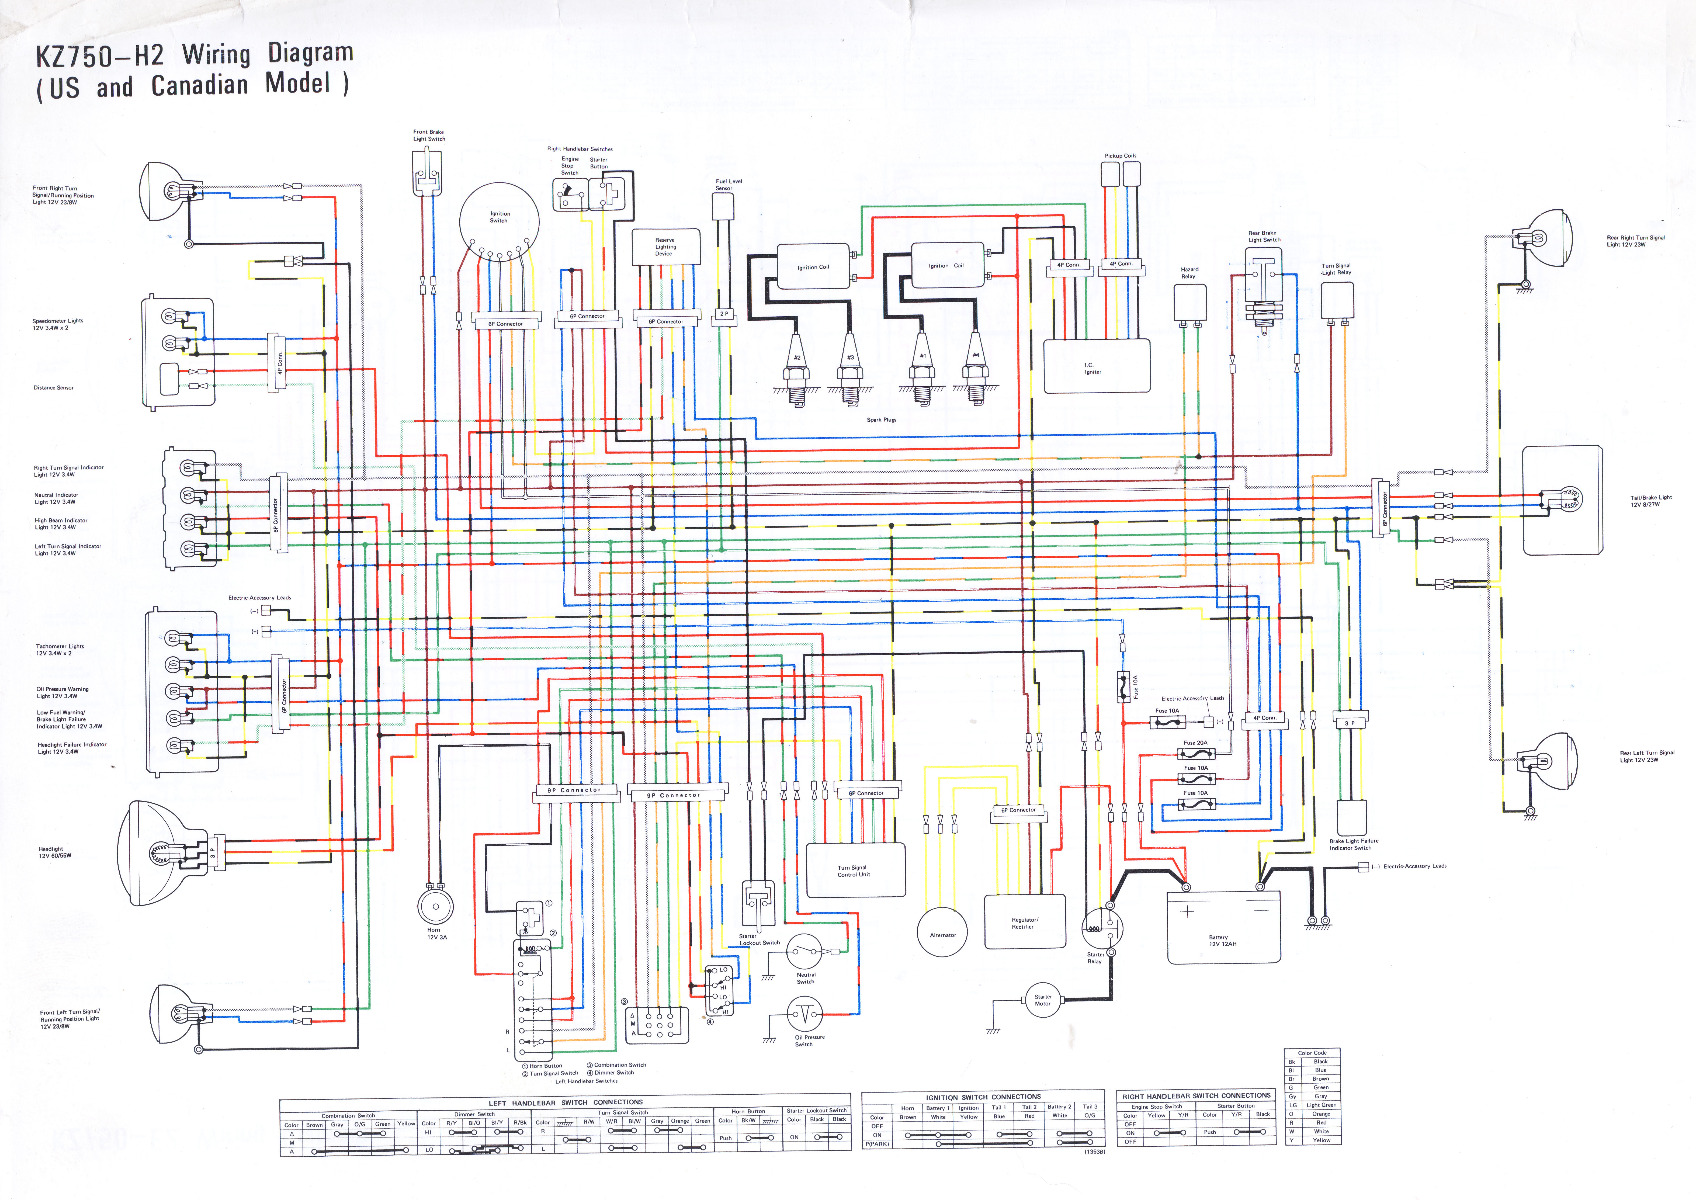 KZ750-H2 Wiring Diagram
(US and Canadian Model)
Front Brake
Light Switch
Right Handlebar Switches
Engine
Stop
Switch
Starter
Button
Pickup Coils
Fuel Level
Sensor
Front Right Turn
Signal/Running Position
Light 12V 23/8W
Ignition
Switch
Reserve
Lighting
Device
Ignition Coil
Ignition Coil
4P Conn.
4P Conn.
Hazard
Relay
Rear Brake
Light Switch
Turn Signal
Light Relay
Rear Right Turn Signal
Light 12V 23W
Speedometer Lights
12V 3.4W x 2
Distance Sensor
4P Conn.
6P Connector
6P Connector
6P Connector
2 P
#2
#3
#1
#4
I.C.
Igniter
Spark Plugs
Right Turn Signal Indicator
Light 12V 3.4W
Neutral Indicator
Light 12V 3.4W
High Beam Indicator
Light 12V 3.4W
Left Turn Signal Indicator
Light 12V 3.4W
6P Connector
6P Connector
Tail/Brake Light
12V 8/27W
Electric Accessory Leads
(-)
(-)
Tachometer Lights
12V 3.4W x 2
Oil Pressure Warning
Light 12V 3.4W
Low Fuel Warning/
Brake Light Failure
Indicator Light 12V 3.4W
Headlight Failure Indicator
Light 12V 3.4W
6P Connector
Fuse 10A
Electric Accessory Leads
Fuse 10A
(-)
Fuse 20A
Fuse 10A
Fuse 10A
4P Conn.
3 P
Rear Left Turn Signal
Light 12V 23W
9P Connector
9P Connector
6P Connector
6P Connector
Headlight
12V 60/55W
3 P
Turn Signal
Control Unit
Brake Light Failure
Indicator Switch
(-) Electric Accessory Leads
Horn
12V 3A
Starter
Lockout Switch
Neutral
Switch
Alternator
Regulator/
Rectifier
Starter
Relay
Battery
12V 12AH
+
−
①
②
③
④
R
L
A
M
A
LO
HI
LO
HI
Starter
Motor
Oil Pressure
Switch
Front Left Turn Signal/
Running Position Light
12V 23/8W
① Horn Button ③ Combination Switch
② Turn Signal Switch ④ Dimmer Switch
Left Handlebar Switches
LEFT HANDLEBAR SWITCH CONNECTIONS
Combination Switch
Color Brown Gray O/G Green Yellow
A
M
A
Dimmer Switch
Color R/Y Bl/O Bl/Y R/Bk
HI
LO
Turn Signal Switch
Color R/W W/R Bl/W Gray Orange Green
R
L
Horn Button
Color Bk/W
Push
Starter Lockout Switch
Color Black Black
ON
IGNITION SWITCH CONNECTIONS
Horn Battery 1 Ignition Tail 1 Tail 2 Battery 2 Tail 3
Color Brown White Yellow Blue Red White O/G
OFF
ON
P(PARK)
(13538)
RIGHT HANDLEBAR SWITCH CONNECTIONS
Engine Stop Switch
Color Yellow Y/R
OFF
ON
OFF
Starter Button
Color Y/R Black
Push
Color Code
Bk Black
Bl Blue
Br Brown
G Green
Gy Gray
LG Light Green
O Orange
R Red
W White
Y Yellow